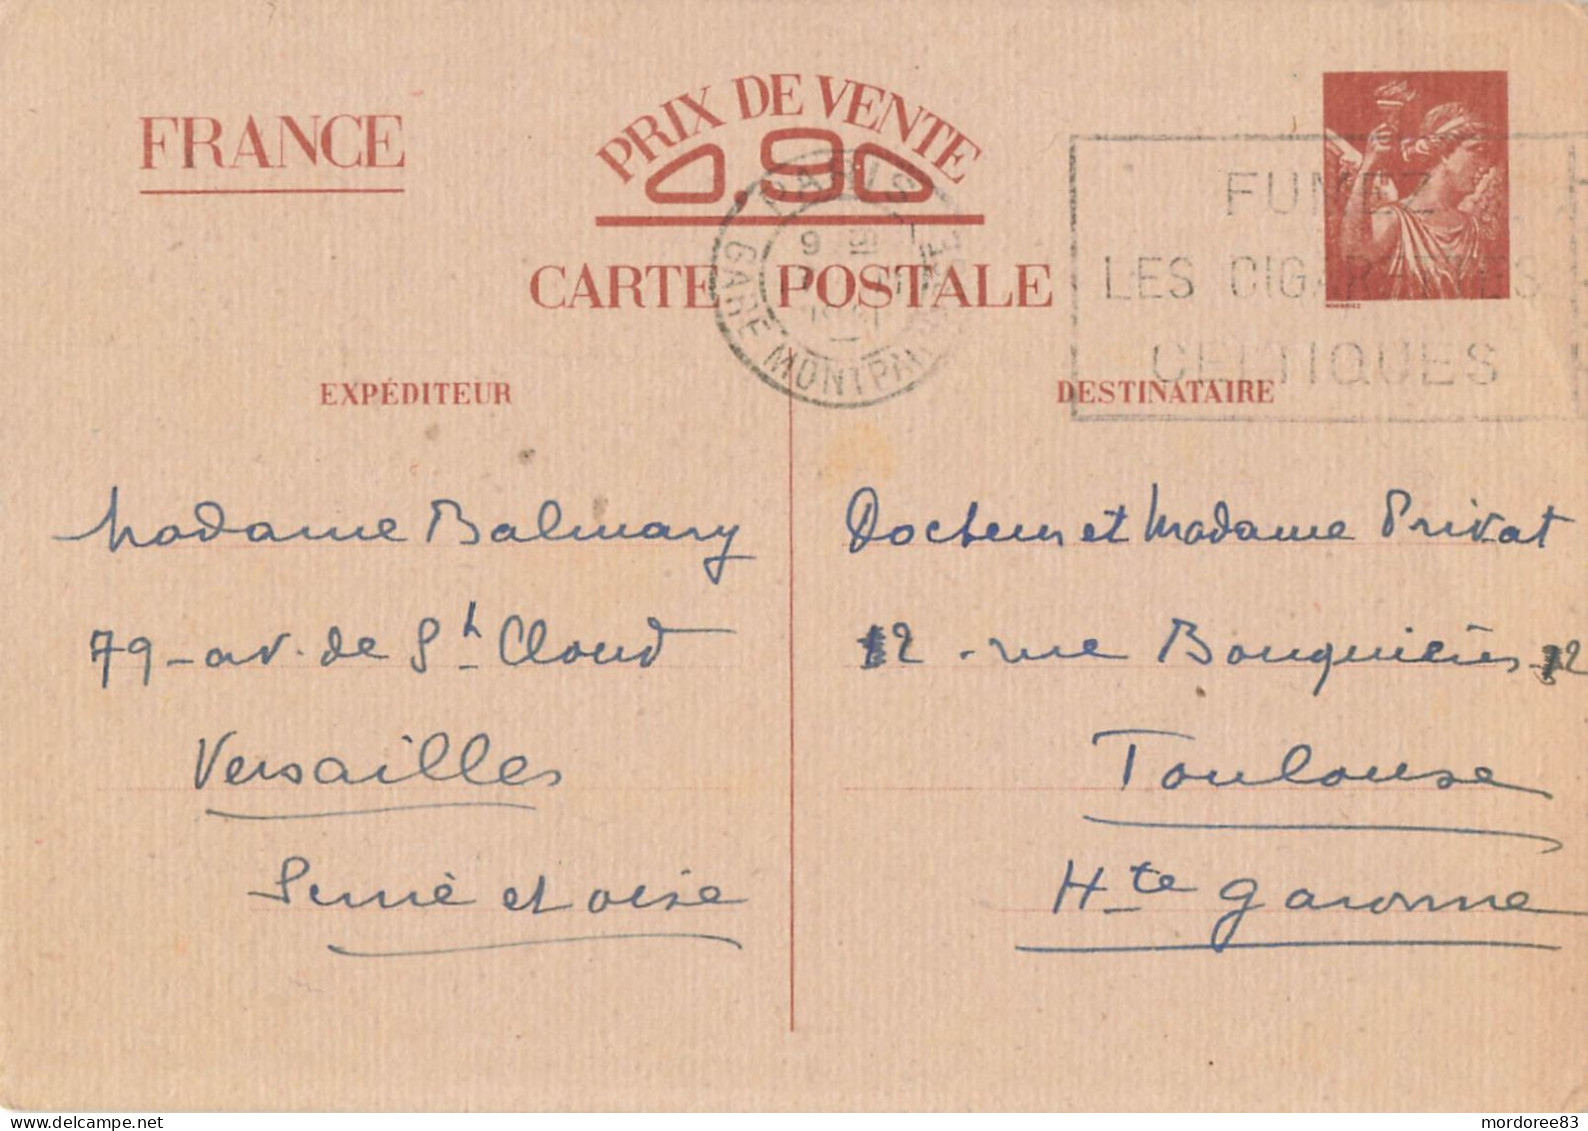 FRANCE
PRIX DE VENTE
0,90
CARTE POSTALE
PARIS
GARE MONTPARNASSE
FUMEZ
LES CIGARETTES
CELTIQUES
EXPÉDITEUR
Madame Balmary
79 - av. de St Cloud
Versailles
Seine et Oise
DESTINATAIRE
Docteur et Madame Privat
12 - rue Bouquières - 12
Toulouse
Hte garonne
mordoree83